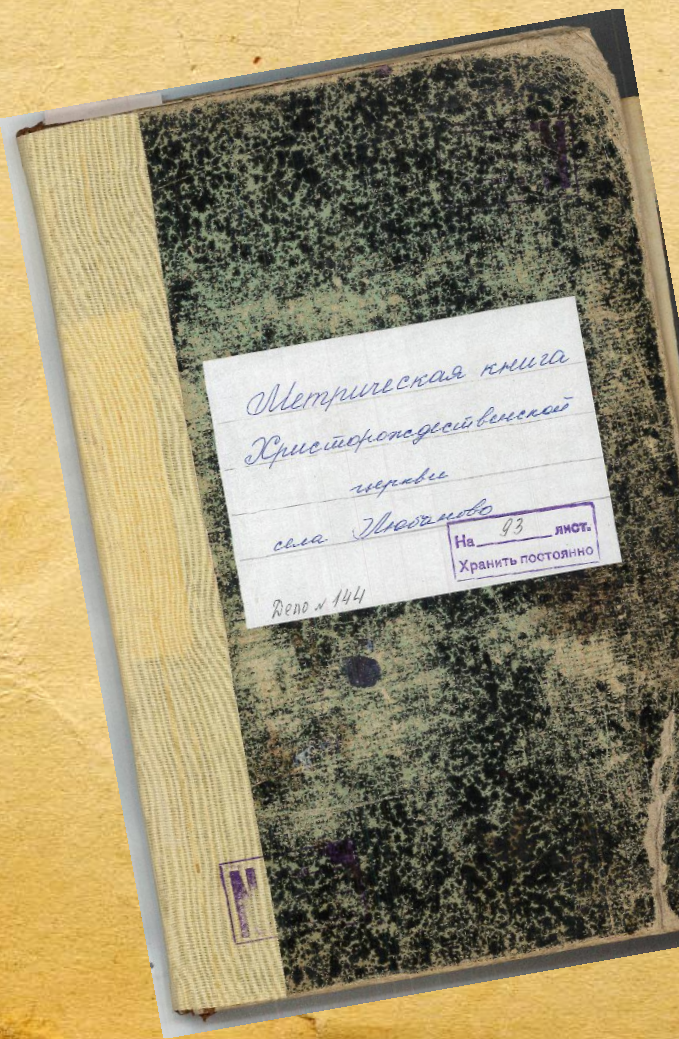 Метрическая книга
Христорождественской
церкви
села Любаново
На 93 лист.
Хранить постоянно
Дело № 144